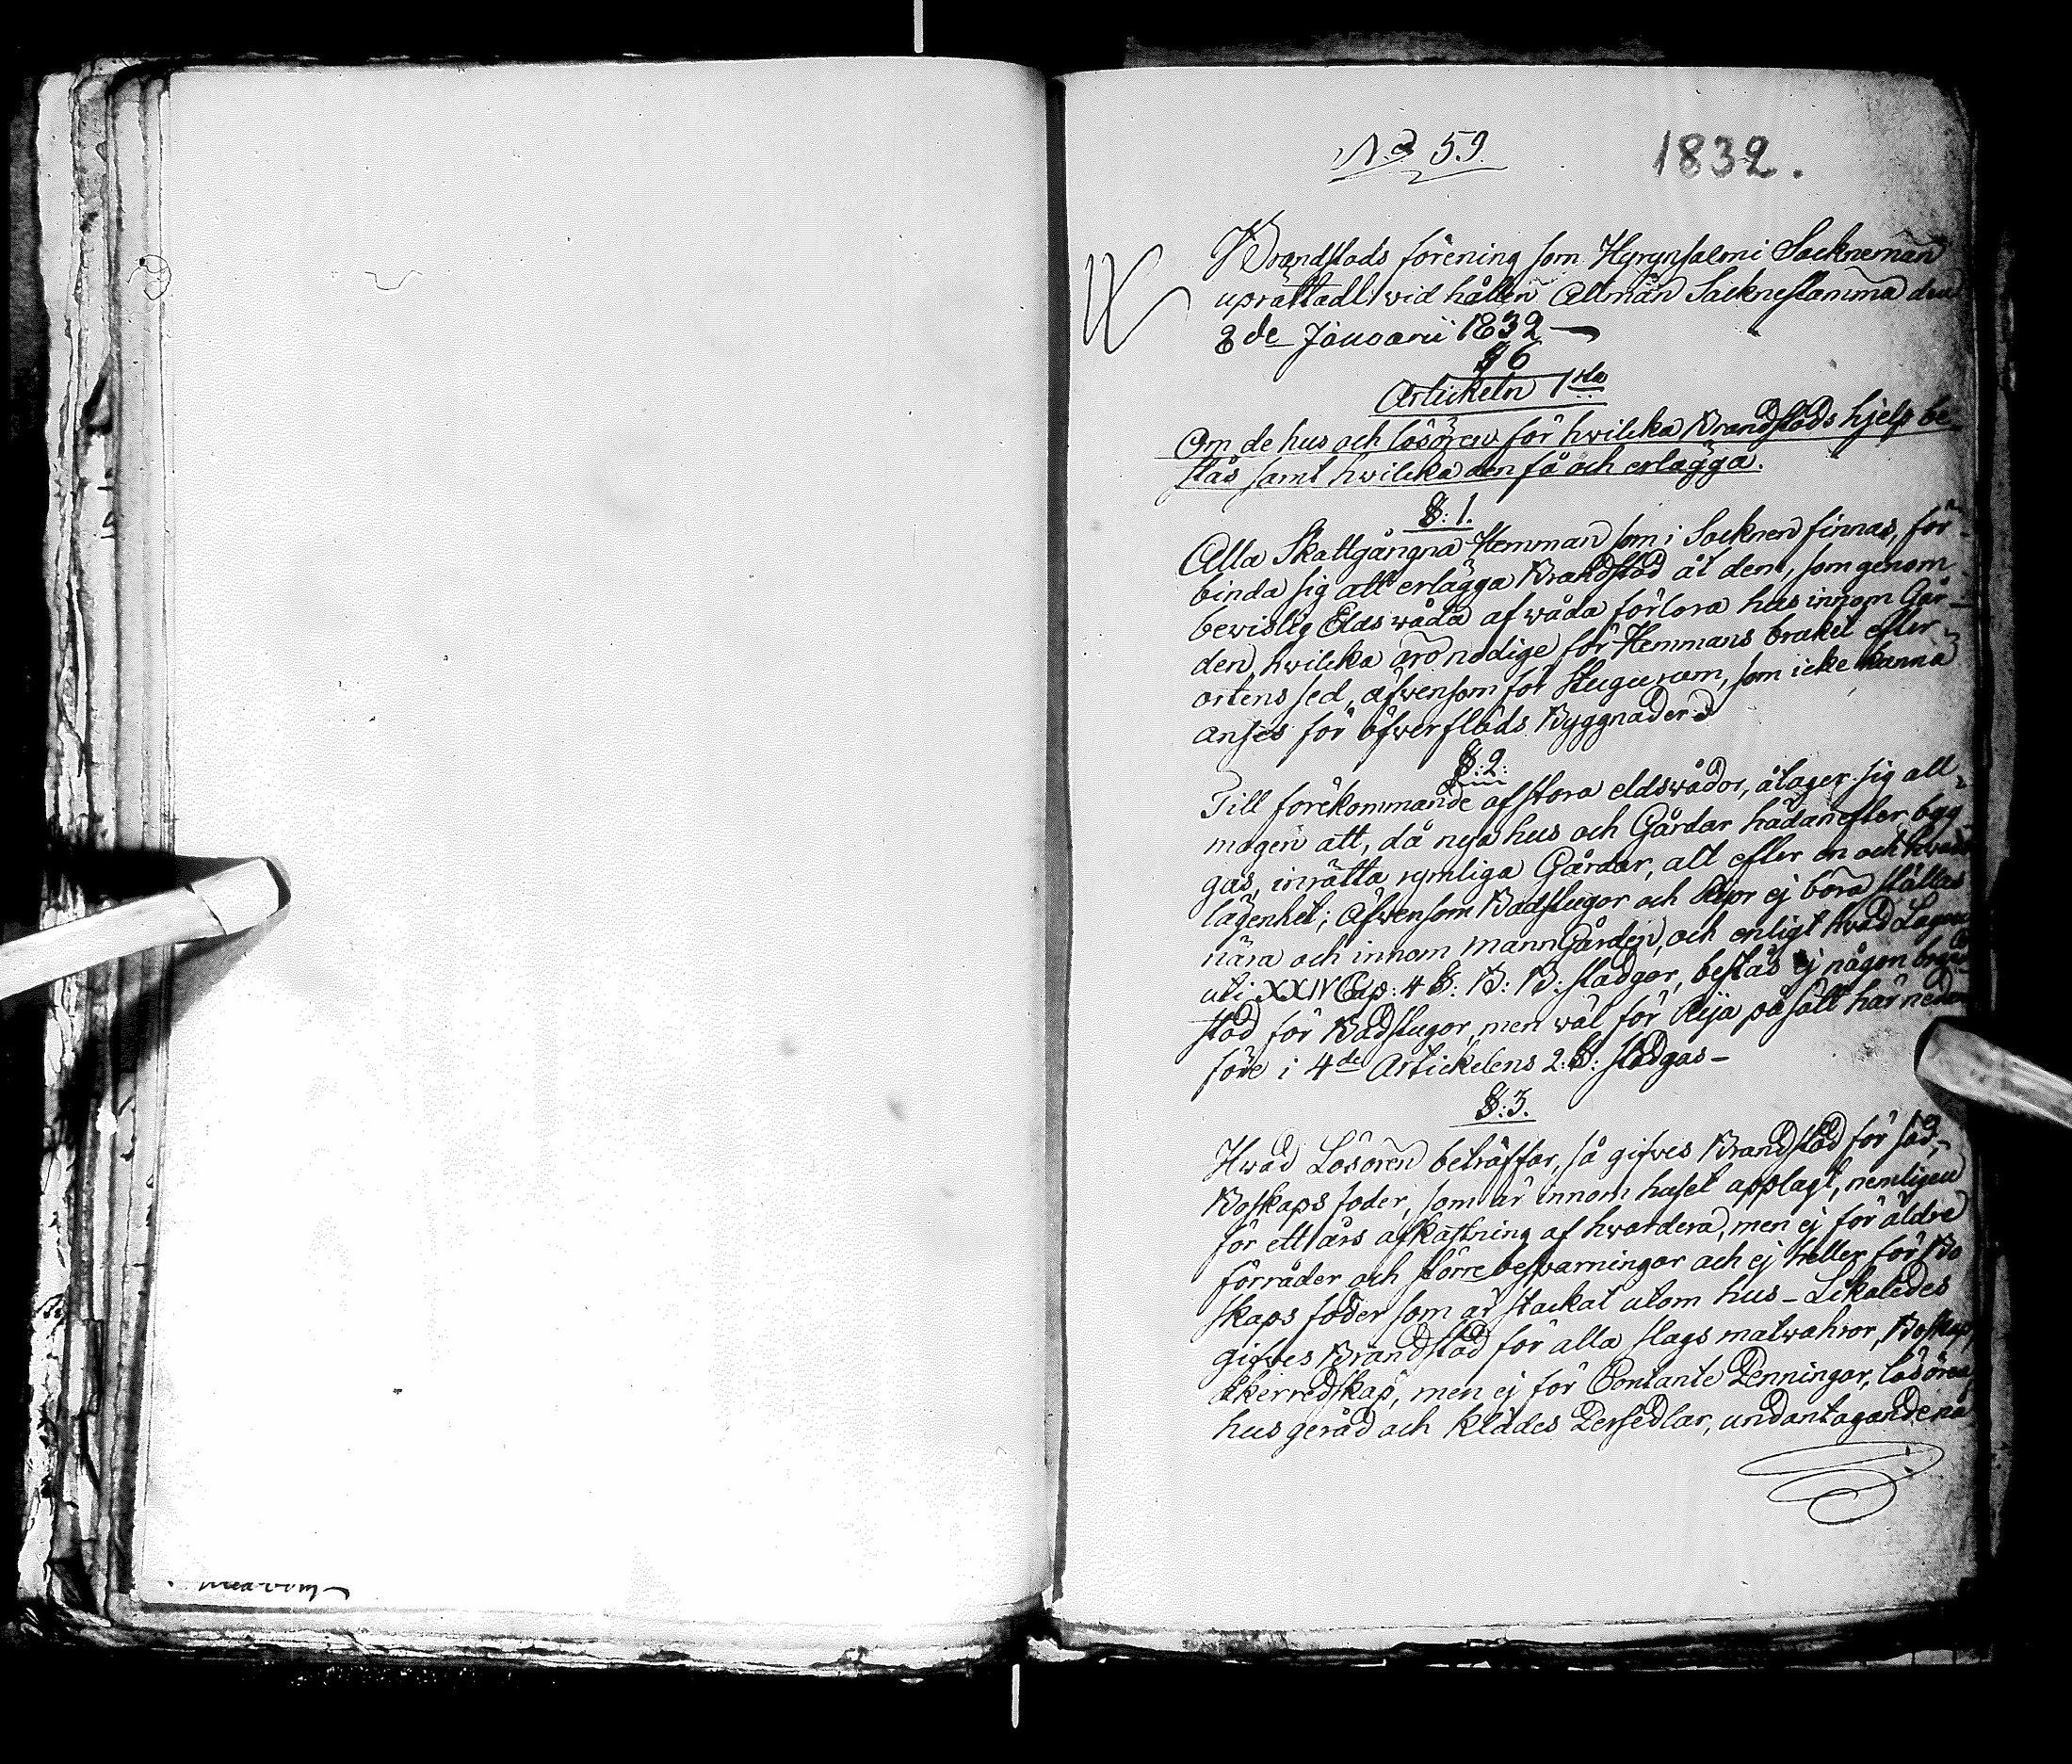 No 59.
1832.
Brandstods förening som Hyrynsalmi Socknemän
uprättadt vid hållen Allmän Socknestämma den
8de Januarii 1832
§ 6
Articheln 1sta
Om de hus och lösören för hwilcka Brandstods hjelp be-
stås samt hwilcka den få och erlägga.
§: 1.
Alla Skattgångna Hemman som i Socknen finnas, för-
binda sig att erlägga Brandstod åt dem, som genom
bevislig Eldswåda af wåda förlora hus innom Går-
den, hwilcka äro nödige för Hemmans bruket efter
ortens sed, äfwensom för Stugurum, som icke kunna
anses för öfwerflöds Byggnader
§: 2:
Till förekommande af stora eldswådor, åtager sig all-
mogen att, då nya hus och Gårdar hädanefter byg-
gas, inrätta rymliga Gårdar, allt efter en och hwars
lägenhet; äfwensom Badstugor och Rior ej böra ställas
nära och innom mannGården, och enligt hwad Lagen
uti XXIV Cap: 4 §: B: B: stadgar, bestås ej någon brand-
stod för Badstugor, men wäl för Rija på sätt här nedan
före i 4de Artickelens 2: §: stadgas –
§: 3.
Hwad Lösören beträffar, så gifwes Brandstod för säd,
Boskaps foder, som är innom huset upplagt, nemligen
för ett års afkastning af hwardera, men ej för äldre
förråder och större besparningar och ej heller för Bo
skaps foder som är stackat utom hus – Likaledes
gifwes Brandstod för alla slags matwahror, Boskap,
åkerredskap, men ej för Contante Penningar, lösören,
husgeråd och klädes Persedlar, undantagande nö